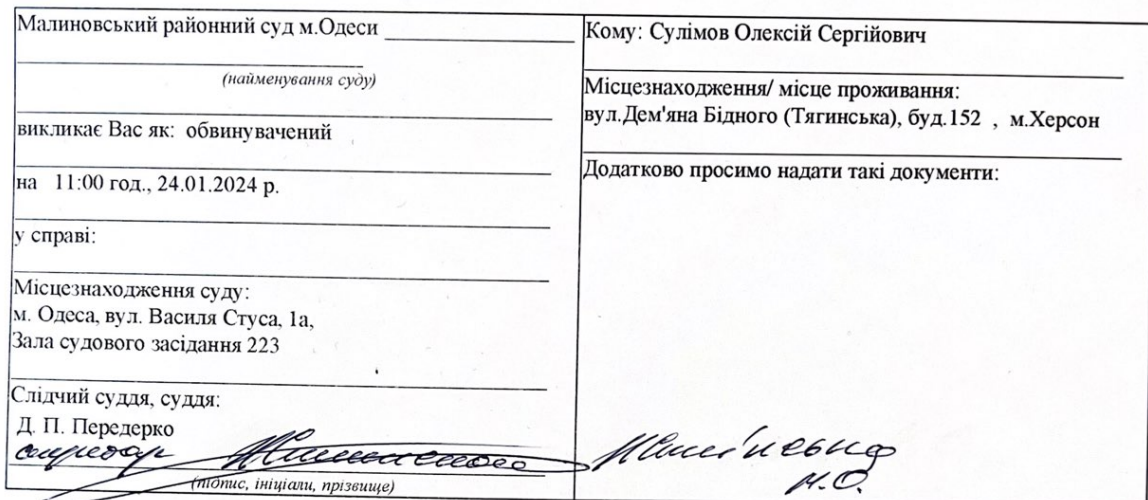 Малиновський районний суд м.Одеси
(найменування суду)
викликає Вас як: обвинувачений
на 11:00 год., 24.01.2024 р.
у справі:
Місцезнаходження суду:
м. Одеса, вул. Василя Стуса, 1а,
Зала судового засідання 223
Слідчий суддя, суддя:
Д. П. Передерко
секретар
(підпис, ініціали, прізвище)
Кому: Сулімов Олексій Сергійович
Місцезнаходження/ місце проживання:
вул.Дем'яна Бідного (Тягинська), буд.152 , м.Херсон
Додатково просимо надати такі документи:
Н.О.